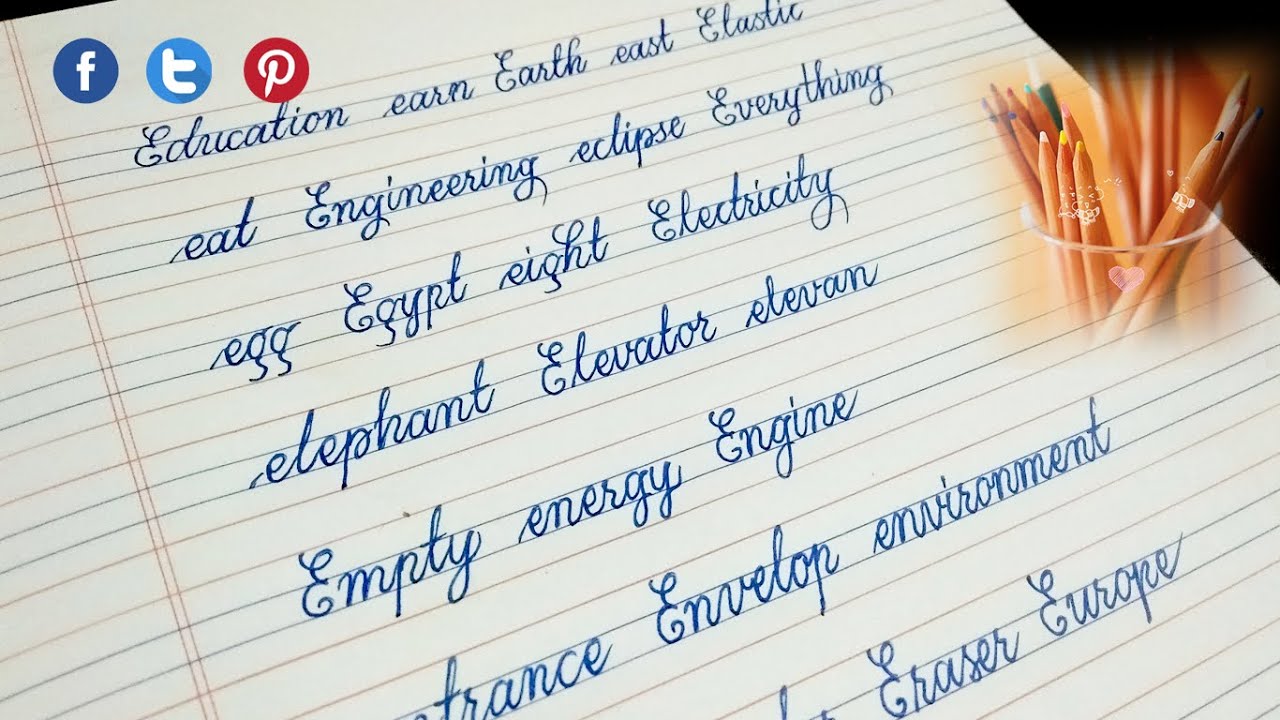 Education earn Earth east Elastic
eat Engineering eclipse Everything
egg Egypt eight Electricity
elephant Elevator elevan
Empty energy Engine
Envelop environment
Eraser Europe